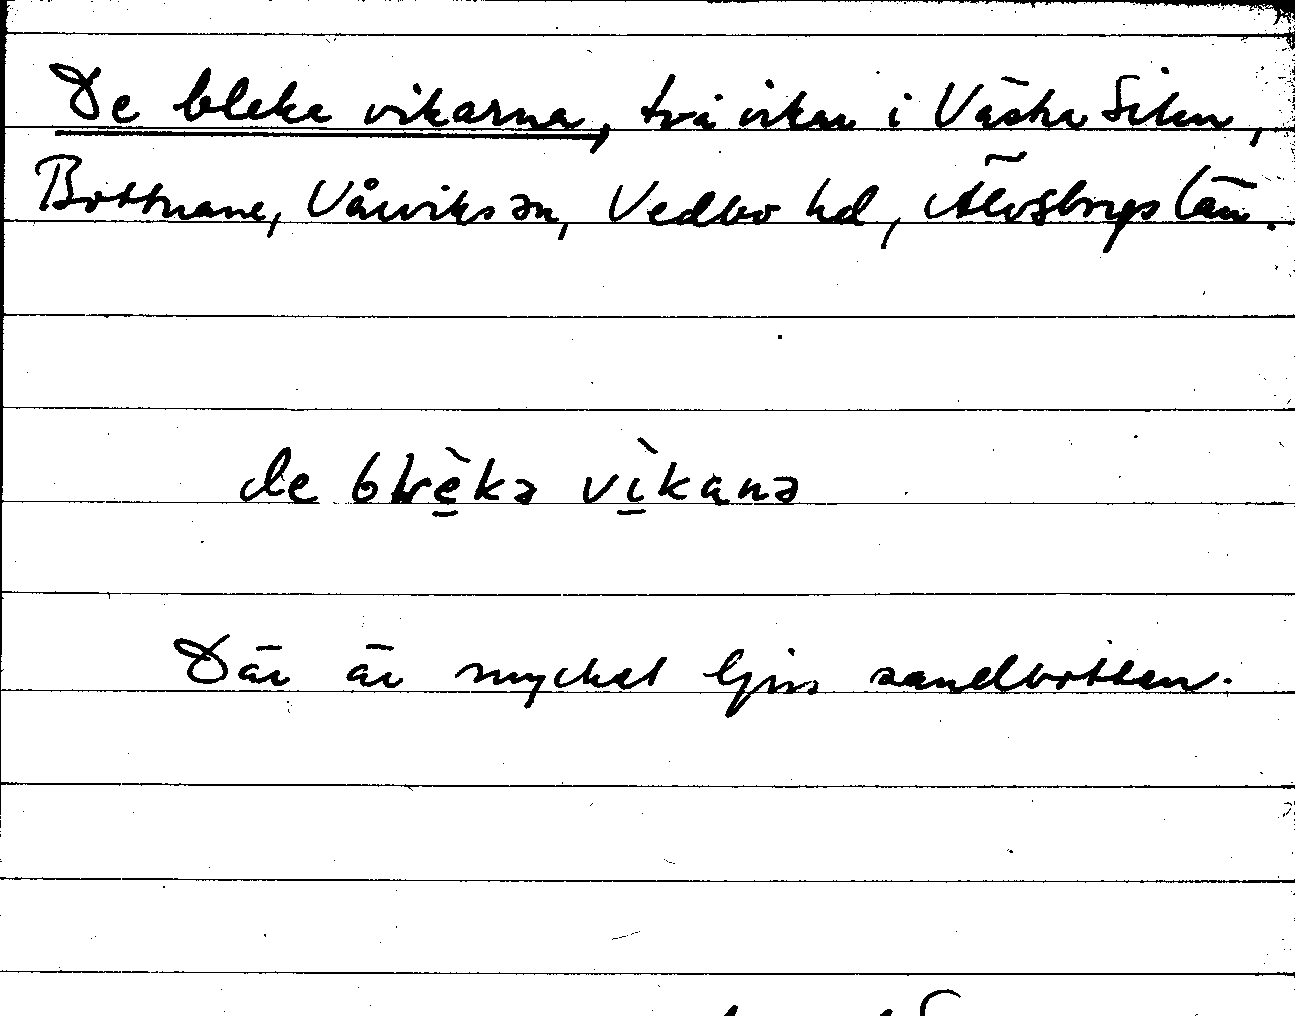 De bleka vikarna, två vikar i Västra Silen,
Bottnane, Vårviks sn, Vedbo hd, Älvsborgs län.
de blèkə vìkanə
Där är mycket ljus sandbotten.